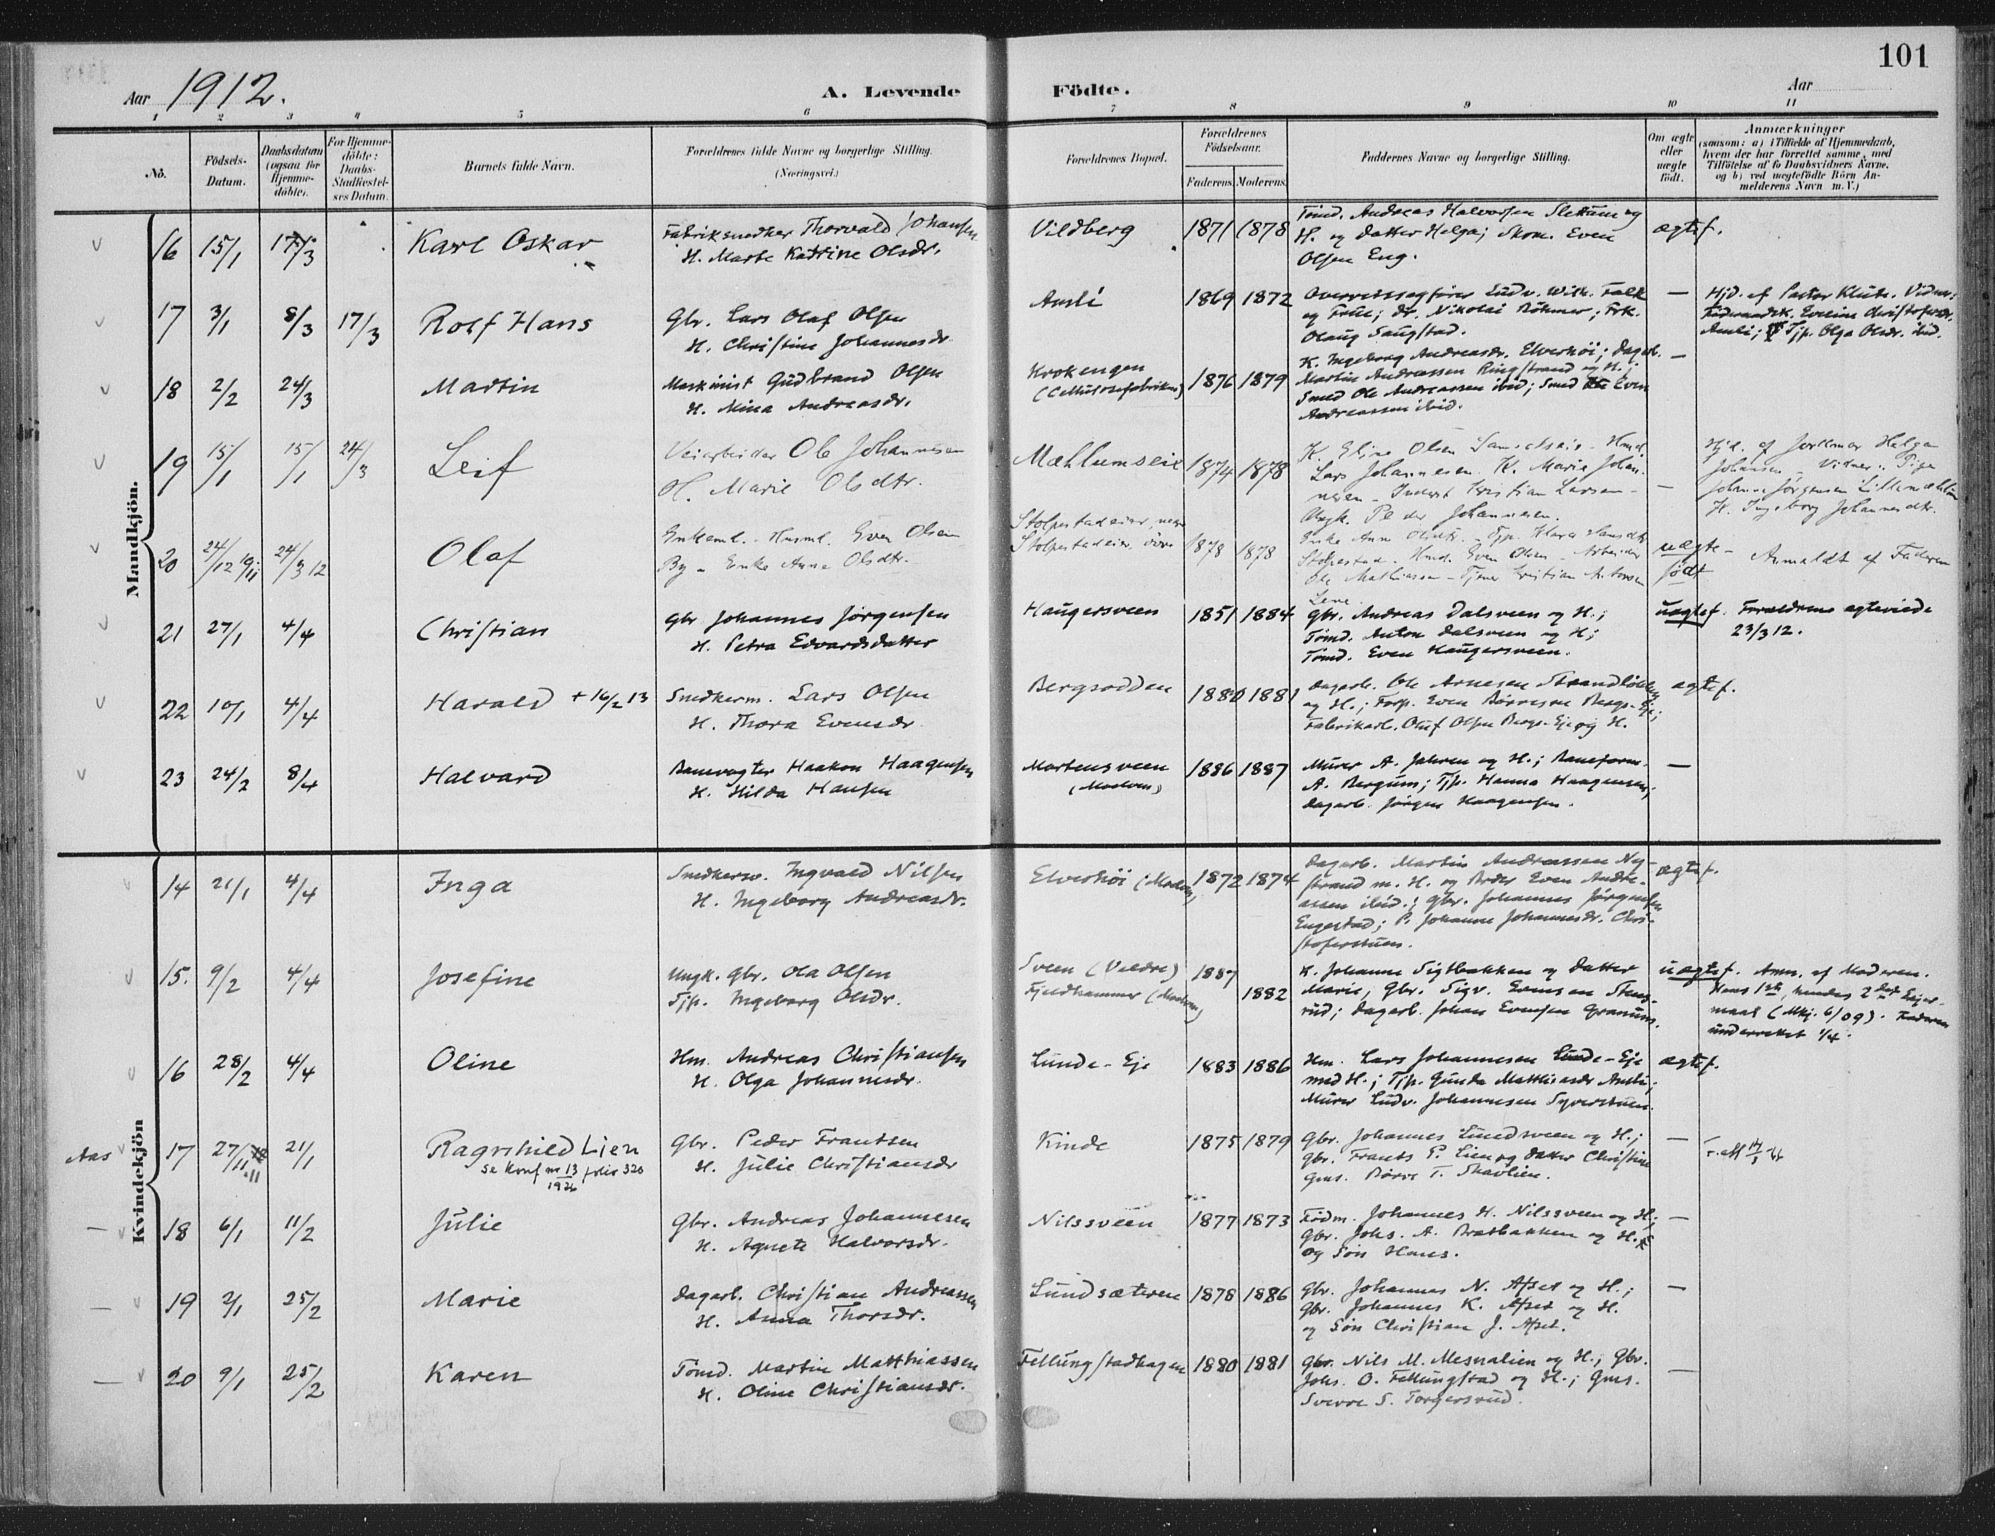 101
Aar 1912.
A. Levende Födte.
Aar
1 2 3 4 5 6 7 8 9 10 11
No.
Födsels-Datum.
Daabsdatum (ogsaa for Hjemme-döbte).
For Hjemme-döbte: Daabs-Stadfæstel-ses Datum.
Barnets fulde Navn.
Forældrenes fulde Navne og borgerlige Stilling.
(Næringsvei.)
Forældrenes Bopæl.
Forældrenes Födselsaar.
Faderens. Moderens.
Faddernes Navne og borgerlige Stilling.
Om ægte eller uægte födt.
Anmærkninger
(saasom: a) i Tilfælde af Hjemmedaab,
hvem der har forrettet samme, med
Tilföielse af to Daabsvidners Navne,
og b) ved uegtefödte Börn An-
melderens Navn m. V.)
Mandkjön.
16 15/1 17/3 Karl Oskar
Fabriksnedker Thorvald Johansen
H. Marte Katrine Olsdr.
Vildberg 1871 1878
Tømd. Andreas Halvorsen Slettum og
H. og Datter Helga; Skom. Even
Olsen Eng.
ægtef.
17 3/1 8/3 17/3 Rolf Hans
Gbr. Lars Olaf Olsen
H. Christine Johannesdr.
Aasli 1869 1872
Overretssagfører Ludv. Wilh. Falk
og Frue; Dr. Nikolai Böhmer; Frk.
Olaug Saugstad.
—
Hjd. af Pastor Klubs. Vidner:
Eveline Christofersdr.
Aasli; Tjp. Olga Olsdr. ibid.
18 2/2 24/3 Martin
Maskinist Gudbrand Olsen
H. Mina Andreasdr.
Krokengen
(Cellulosefabriken)
1876 1879
K. Ingeborg Andreasdr. Elverhöi; Dagarb.
Martin Andreassen Ringstrand og H.;
Smed Ole Andreassen ibid; Smed Even
Andreassen ibid.
—
19 15/1 15/1 24/3 Leif
Veiarbeider Ole Johannesen
H. Marie Olsdtr.
Mæhlumseie 1874 1878
K. Eline Olsen
Lars Johannesen. K. Marie Johan-
nesen - Inderst Kristian Larsen -
Ungk. Peder Johannesen.
—
Hjd. af Jordmor Helga
Johansen - Vidner: Pige
Johanne Jørgensen Lillemæhlum
K. Ingeborg Johannesdtr.
20 24/12 1911 24/3 12 Olaf
Enkem. - Husm. Even Olsen
By - Enke Anna Olsdtr.
Stolpestadeier, nedre
Stolpestadeier, övre
1878 1878
Enke Anne Olsdtr. - Tjp. Klara Hansdtr.
Stolpestad. Husm. Even Olsen - Arbeider
Ole Mathiassen - Tjener Kristian Antonsen
Lene.
uægte-
födt
Anmeldt af Faderen
21 27/1 4/4 Christian
Gbr Johannes Jørgensen
H. Petra Edvardsdatter
Haugersveen 1851 1884
Gbr. Andreas Dalsveen og H.;
Tømd. Anton Dalsveen og H;
Tømd. Even Haugersveen.
uægtef. Forældrene ægteviede
23/3 12.
22 10/1 4/4 Harald + 16/2 13
Snedkerm. Lars Olsen
H. Thora Evensdr.
Bergsodden 1880 1881
Dagarb. Ole Arnesen Strandløkken
og H.; Forp. Even Børresen Bergs-Eje;
Fabrikarb. Oluf Olsen Bergs-Eje og H.
ægtef.
23 24/2 8/4 Halvard
Banevogter Haakon Haagensen
H. Hilda Hansen
Mortensveen
(Moelven)
1886 1887
Murer A. Jahren og H.; Baneform.
A. Bergum; Tjp. Hanna Haagensen;
Dagarb. Jørgen Haagensen.
—
Kvindekjön
14 21/1 4/4 Inga
Snedkersv. Ingvald Nilsen
H. Ingeborg Andreasdr.
Elverhöi (Moelven) 1872 1874
Dagarb. Martin Andreassen Ny-
strand m. H. og Broder Even Andre-
assen ibid.; Gbr. Johannes Jørgensen
Engestad; P. Johanne Johannesdr. Chri-
stoferstuen.
ægtef.
15. 9/2 4/4 Josefine
Ungk. Gbr. Ola Olsen
Tjp. Ingeborg Olsdr.
Sveen (Veldre) 1887
Fjeldhammer (Moelven) 1882
K. Johanne Sigtbakken og Datter
Marie; Gbr. Sigv. Evensen Stens-
rud; Dagarb. Johan Evensen Granum.
uægtef. Anm. af Moderen.
Hans 1ste, hendes 2det Leier-
maal (Mkj. 6/09). Faderen
underrettet 1/4.
16 28/2 4/4 Oline
Hm. Andreas Christiansen
H. Olga Johannesdr.
Lunde-Eje 1883 1886
Hm. Lars Johannesen Lunde-Eje
med H.; Tjp. Gunda Matthiasdr Aasli;
Murer Ludv. Johannesen Syverstuen.
ægtef.
Aas 17 27/11 11 21/1 Ragnhild Lien
se konf nr 13 folio 320
1926
Gbr. Peder Frantsen
H. Julie Christiansdr
Kinde 1875 1879
Gbr. Johannes Lundsveen og H.;
Gbr. Frants P. Lien og Datter Christine
Gms. Børre T. Skavlien.
—
— 18 6/1 11/2 Julie
Gbr. Andreas Johannesen
H. Agnete Halvorsdr.
Nilssveen 1877 1873
Fødm. Johannes H. Nilssveen og H.;
Gbr. Johs. A. Bratbakken og H.
og Søn Hans.
—
— 19 2/1 25/2 Marie
Dagarb. Christian Andreassen
H. Anna Thorsdr.
Lundsæteren 1878 1886
Gbr. Johannes N. Afset og H.;
Gbr. Johannes K. Afset og H.
og Søn Christian J. Afset.
—
— 20 9/1 25/2 Karen
Tömd. Martin Matthiassen
H. Oline Christiansdr.
Fellungstadhagen 1880 1881
Gbr. Nils M. Mesnalien og H.; Gbr.
Johs. O. Fellungstad og H.; Gms.
Sverre S. Torgersrud.
—